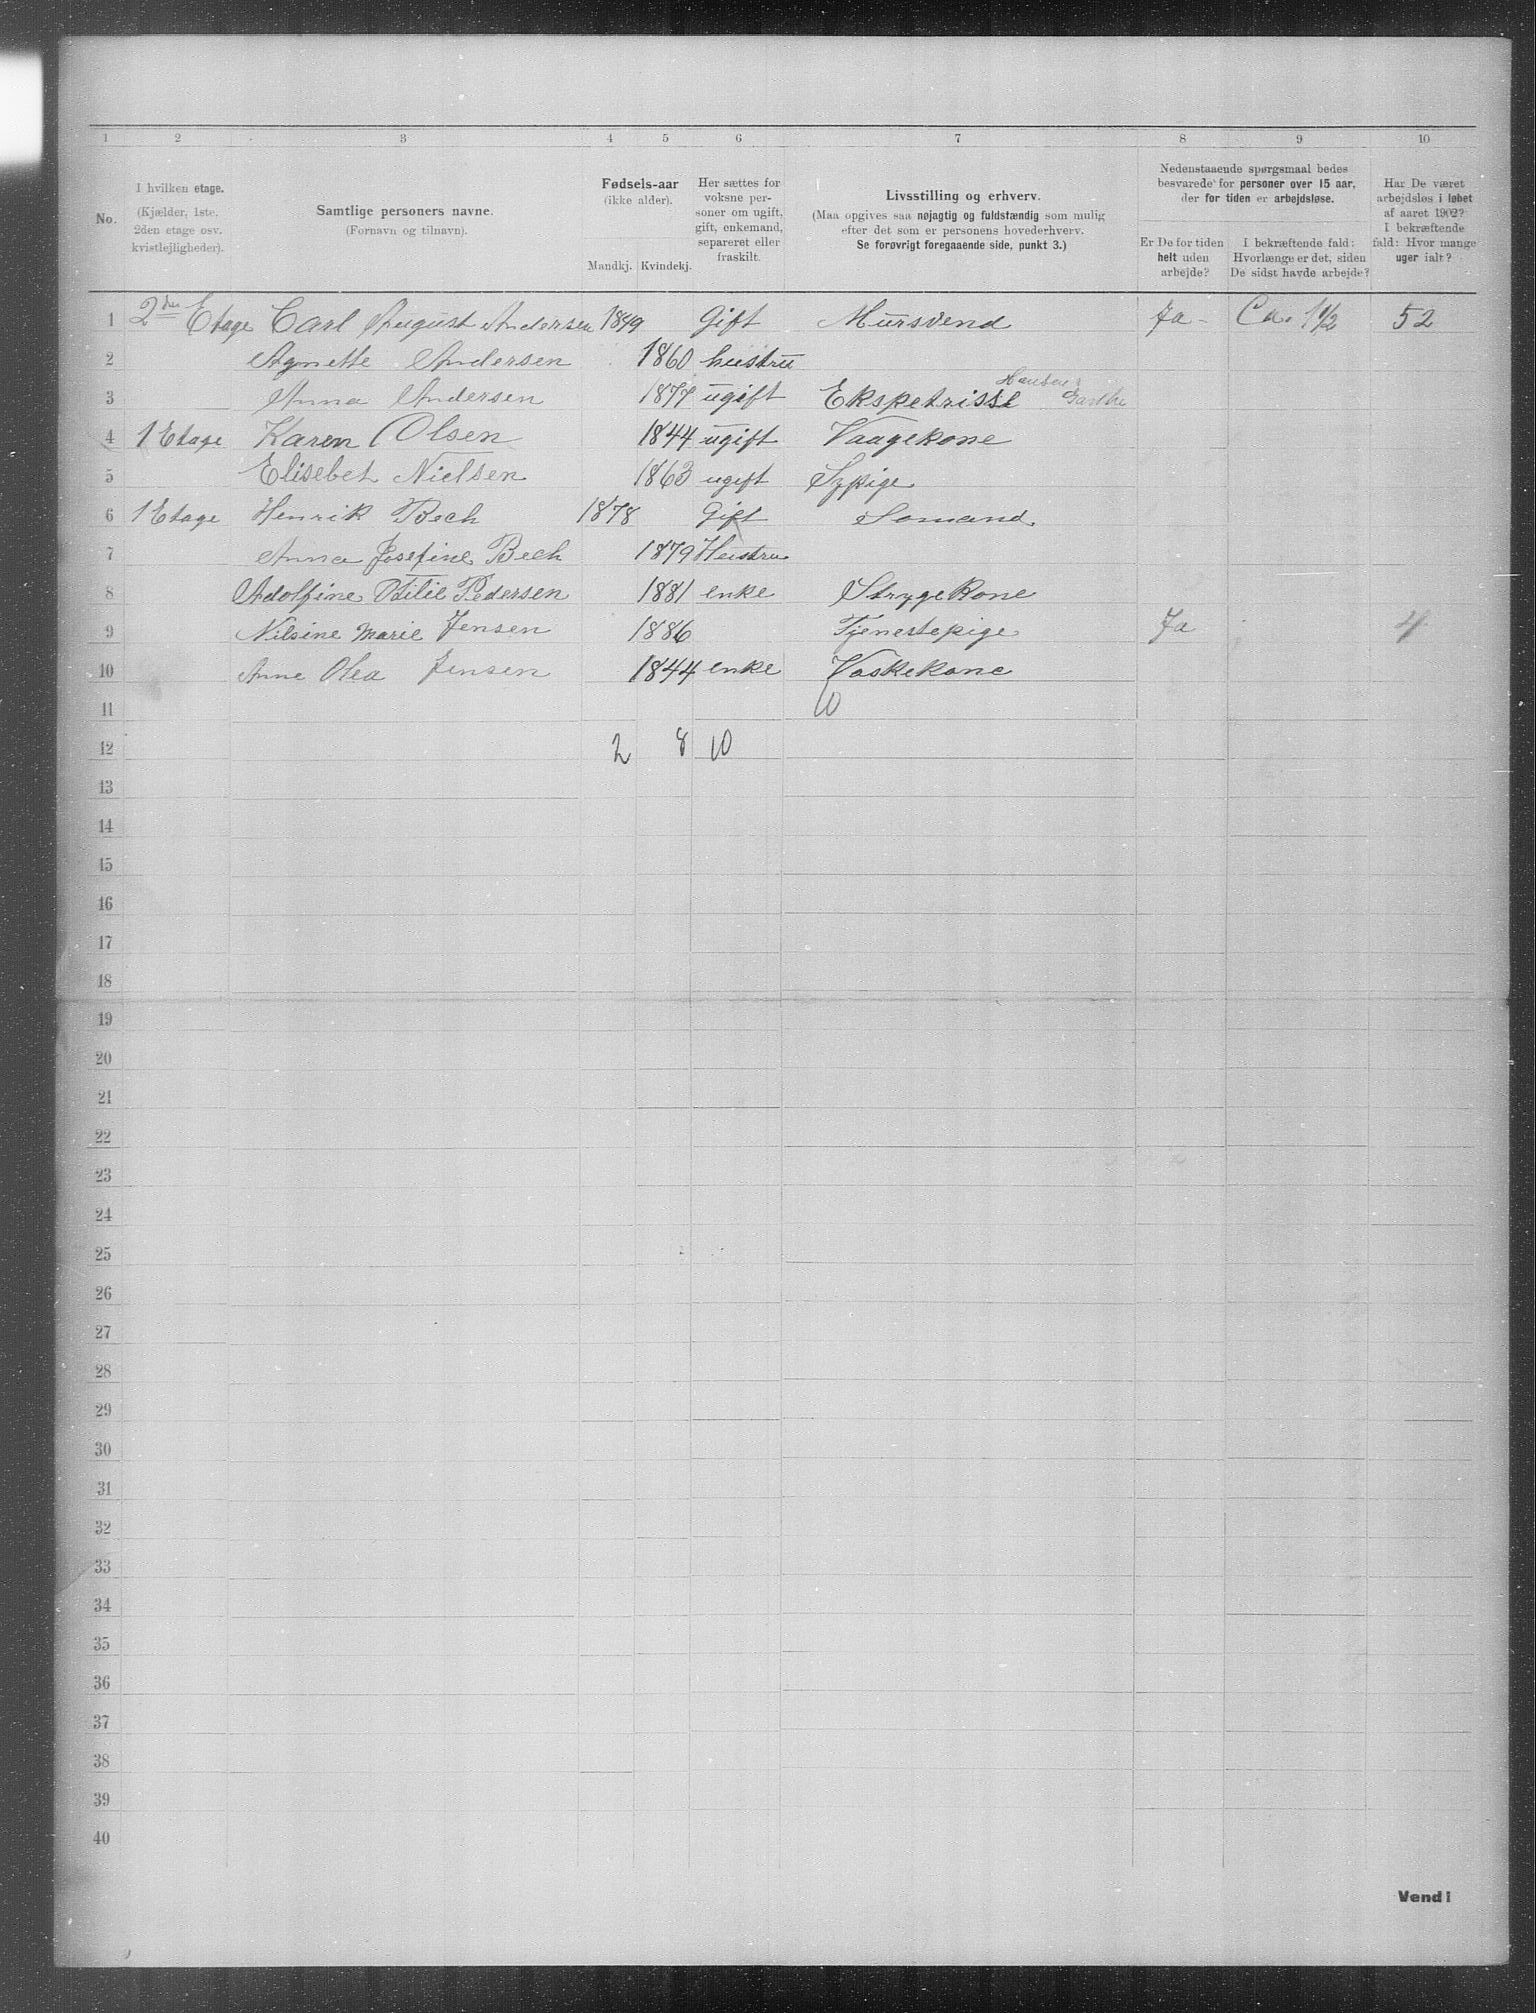 1 2 3 4 5 6 7 8 9 10
No.
I hvilken etage.
(Kjælder, 1ste.
2den etage osv.
kvistlejligheder).
Samtlige personers navne.
(Fornavn og tilnavn).
Fødsels-aar
(ikke alder).
Mandkj. Kvindekj.
Her sættes for
voksne per-
soner om ugift,
gift, enkemand,
separeret eller
fraskilt.
Livsstilling og erhverv.
(Maa opgives saa nøjagtig og fuldstændig som mulig
efter det som er personens hovederhverv.
Se forøvrigt foregaaende side, punkt 3.)
Nedenstaaende spørgsmaal bedes
besvarede for personer over 15 aar,
der for tiden er arbejdsløse.
Er De for tiden
helt uden
arbejde?
I bekræftende fald:
Hvorlænge er det, siden
De sidst havde arbejde?
Har De været
arbejdsløs i løbet
af aaret 1902?
I bekræftende
fald: Hvor mange
uger ialt?
1 2den Etage Carl August Andersen 1849 Gift Mursvend Ja - Ca. 1 1/2 52
2 Agnette Andersen 1860 hustru
3 Anna Andersen 1877 ugift Ekspetrisse Hansen
4 1 Etage Karen Olsen 1844 ugift Vaagekone
5 Elisebet Nielsen 1863 ugift Sypige
6 1 Etage Henrik Bech 1878 Gift Sømand.
7 Anna Josefine Bech 1879 Hustru
8 Adolfine Otilie Pedersen 1881 enke Strygekone
9 Nilsine Marie Jensen 1886 Tjenestepige Ja 4
10 Anne Olea Jensen 1844 enke Vaskekone
11 10
12 2 8 10
13
14
15
16
17
18
19
20
21
22
23
24
25
26
27
28
29
30
31
32
33
34
35
36
37
38
39
40
Vend!